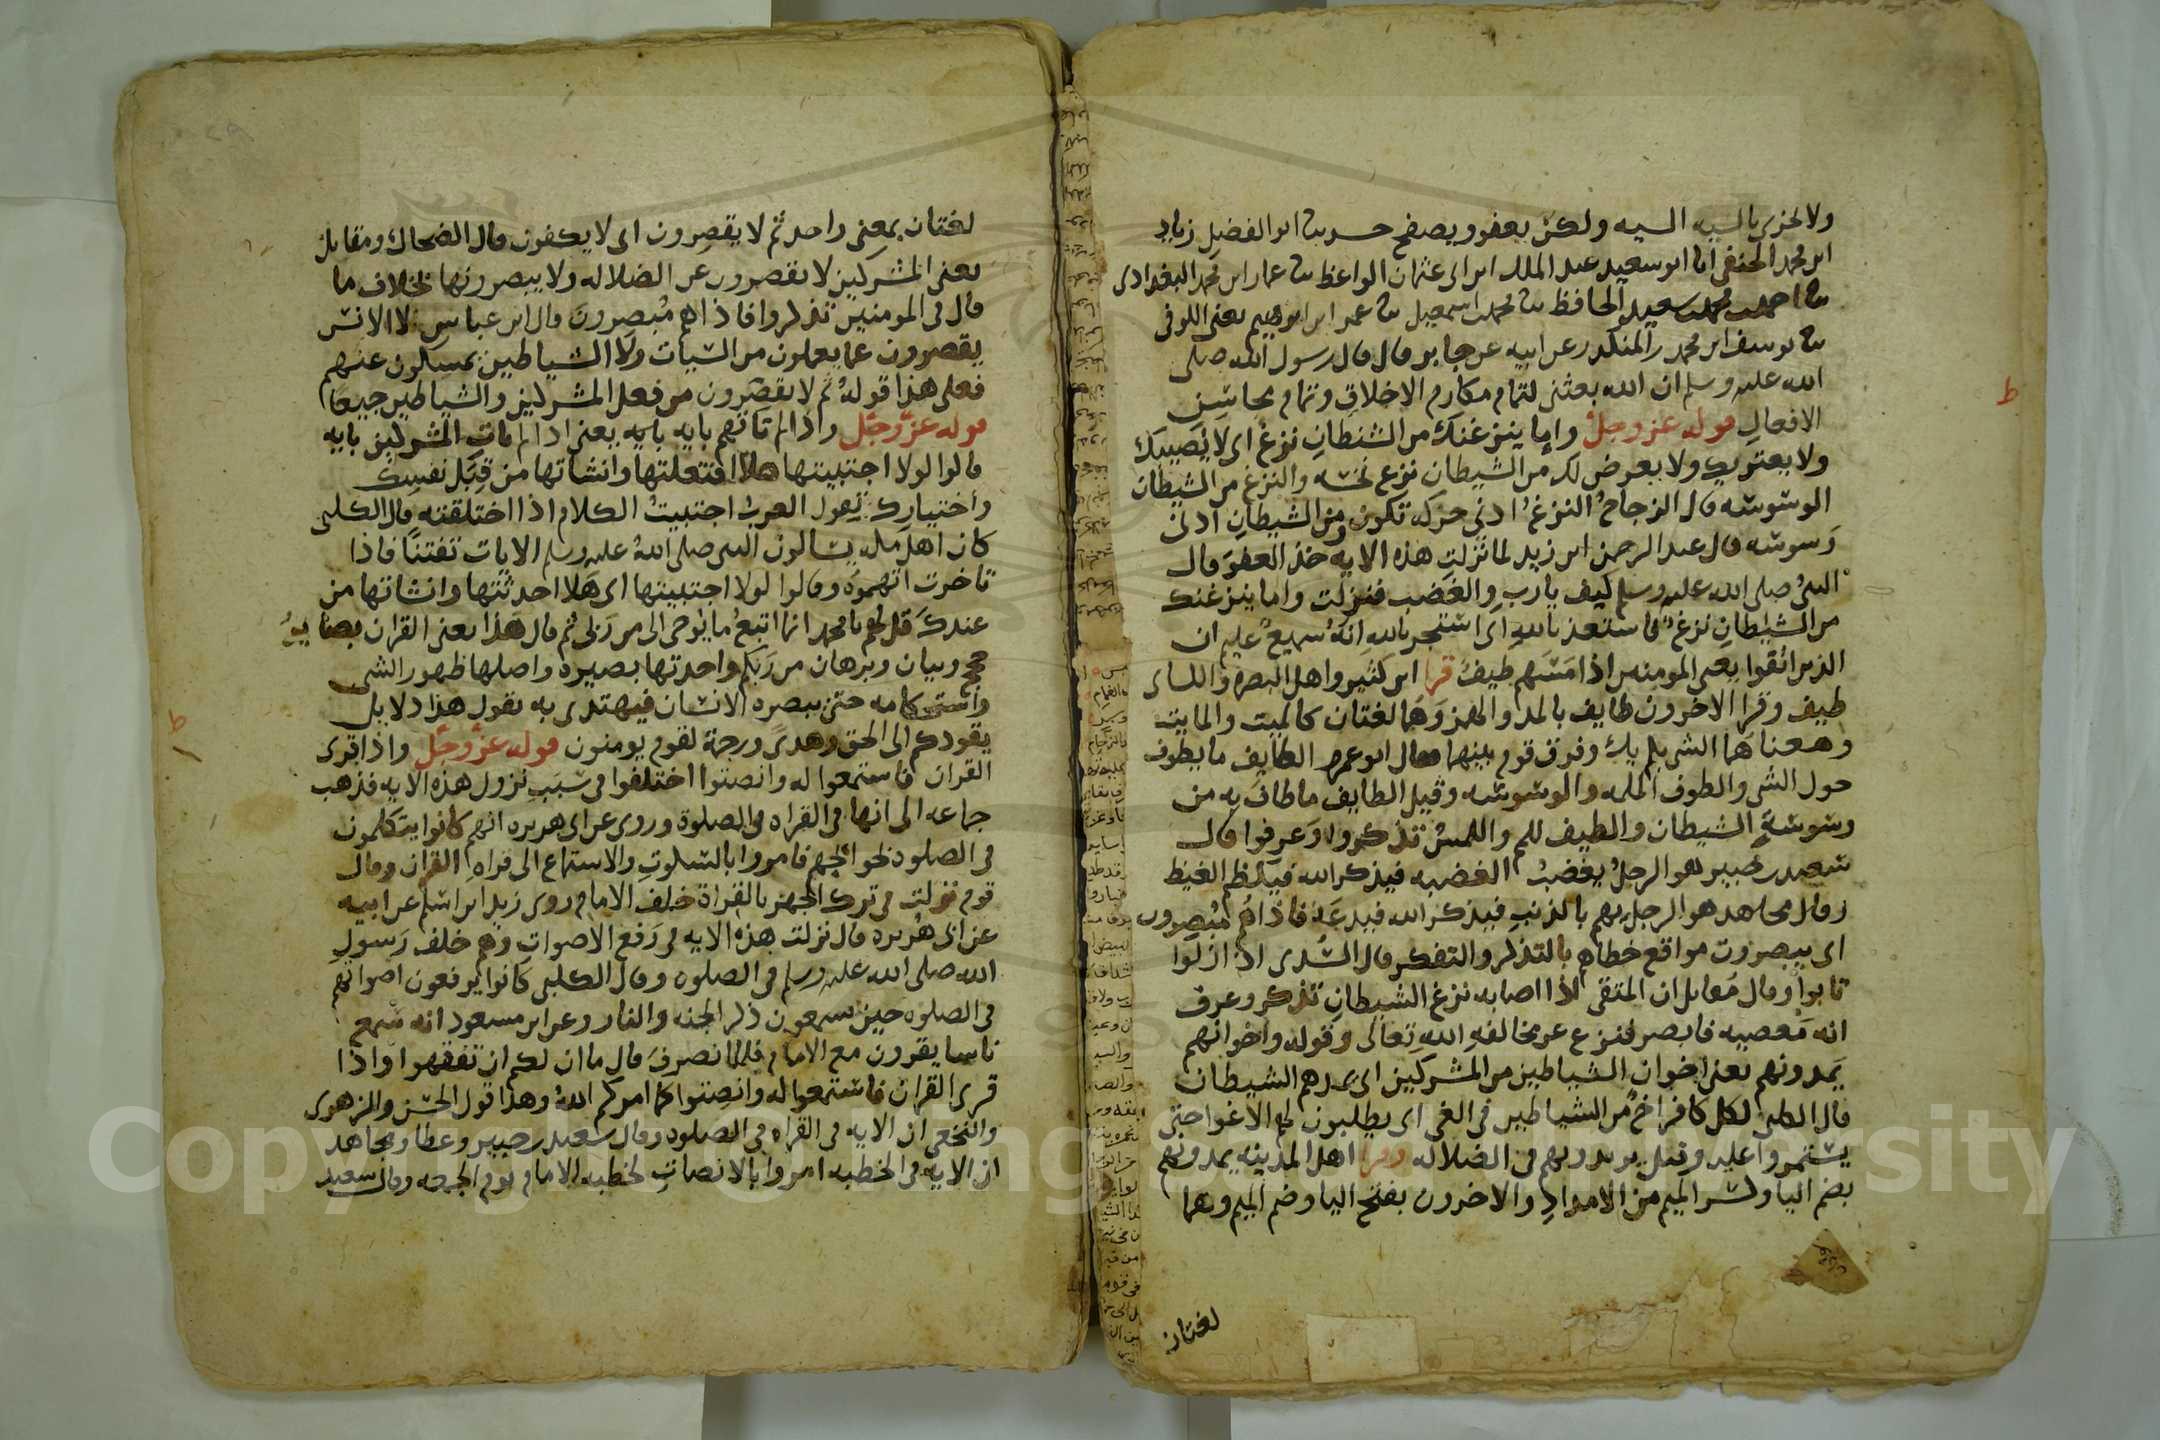 ولا يجزي بالسيه السيه ولكن يعفو ويصفح حدثنا ابو الفضل زياد
ابن محمد الحنفي انا ابو سعيد عبد الملك ابن ابي عثمان الواعظ ثنا عمار ابن محمد البغدادي
ثنا احمد بن محمد بن سعيد الحافظ ثنا محمد بن اسمعيل ثنا عمر ابن ابرهيم يعني الكوفي
ثنا يوسف ابن محمد بن المنكدر عن ابيه عن جابر قال قال رسول الله صلى
الله عليه وسلم ان الله بعثني لتمام مكارم الاخلاق وتمام محاسن
الافعال قوله عز وجل واما ينزغنك من الشيطان نزغ اي لا يصيبنك
ولا يعتريك ولا يعرض لك من الشيطان نزغ نخسه والنزغ من الشيطان
الوسوسه قال الزجاج النزغ ادنى حركه تكون ومن الشيطان ادنى
وسوسه قال عبد الرحمن ابن زيد لما نزلت هذه الايه خذ العفو قال
النبي صلى الله عليه وسلم كيف يارب والغضب فنزلت واما ينزغنك
من الشيطان نزغ فاستعذ بالله اي استجر بالله انه سميع عليم ان
الذين اتقوا يعني المومنين اذا مسهم طيف قرا ابن كثير واهل البصره والكساي
طيف وقرا الاخرون طايف بالمد والهمز وهما لغتان كالميت والمايت
ومعناهما الشي يلم بك وفرق قوم بينهما فقال ابو عمرو الطايف ما يطوف
حول الشي والطوف اللمه والوسوسه وقيل الطايف ما طاف به من
وسوسة الشيطان والطيف اللمم والمس تذكروا وعرفوا قال
سعيد بن جبير هو الرجل يغضب الغضبه فيذكر الله فيكظم الغيظ
وقال مجاهد هو الرجل يهم بالذنب فيذكر الله فيدعه فاذا هم مبصرون
اي يبصرون مواقع خطاهم بالتذكر والتفكر قال السدي اذا زلوا
تابوا وقال مقاتل ان المتقي اذا اصابه نزغ الشيطان تذكر وعرف
انه معصيه فابصر فنزع عن مخالفه الله تعالى وقوله واخوانهم
يمدونهم يعني اخوان الشياطين من المشركين اي يمدهم الشيطان
قال الكلبي لكل كافر اخ من الشياطين في الغي اي يطلبون لهم الاغوا حتى
يستمروا عليه وقيل يزيدونهم في الضلاله وقرا اهل المدينه يمدونهم
بضم اليا وكسر الميم من الامداد والاخرون بفتح اليا وضم الميم وهما
لغتان
لغتان بمعنى واحد ثم لا يقصرون اي لا يكفون قال الضحاك ومقاتل
يعني المشركين لا يقصرون عن الضلاله ولا يبصرونها بخلاف ما
قال في المومنين تذكروا فاذا هم مبصرون قال ابن عباس لا الانس
يقصرون عما يعملون من السيات ولا الشياطين يمسكون عنهم
فعلى هذا قوله ثم لا يقصرون من فعل المشركين والشياطين جميعا
قوله عز وجل واذا لم تاتهم بايه بايه يعني اذا لم يات المشركين بايه
قالوا لولا اجتبيتها هلا افتعلتها وانشاتها من قبل نفسك
واختيارك تقول العرب اجتبيت الكلام اذا اختلقته قال الكلبي
كان اهل مكه يسالون النبي صلى الله عليه وسلم الايات تفتنا فاذا
تاخرت اتهموه وقالوا لولا اجتبيتها اي هلا احدثتها وانشاتها من
عندك قل لهم يا محمد انما اتبع ما يوحى الى من ربي ثم قال هذا يعني القران بصاير
حجج وبيان وبرهان من ربكم واحدتها بصيره واصلها ظهور الشي
واستحكامه حتى يبصره الانسان فيهتدي به يقول هذا دلايل
يقودكم الى الحق وهدى ورحمة لقوم يومنون قوله عز وجل واذا قرى
القران فاستمعوا له وانصتوا اختلفوا في سبب نزول هذه الايه فذهب
جماعه الى انها في القراه في الصلوة وروى عن ابي هريره انهم كانوا يتكلمون
في الصلوه بحوائجهم فامروا بالسكوت والاستماع الى قراه القران وقال
قوم نزلت في ترك الجهر بالقراة خلف الامام روى زيد ابن اسلم عن ابيه
عن ابي هريره قال نزلت هذه الايه في رفع الاصوات وهم خلف رسول
الله صلى الله عليه وسلم في الصلوه وقال الكلبي كانوا يرفعون اصواتهم
في الصلوه حين يسمعون ذكر الجنه والنار وعن ابن مسعود انه سمع
ناسا يقرون مع الامام فلما انصرف قال ما ان لكم ان تفقهوا واذا
قرى القران فاستمعوا له وانصتوا كما امركم الله وهذا قول الحسن والزهري
والنخعي ان الايه في القراه في الصلوه وقال سعيد بن جبير وعطا ومجاهد
ان الايه في الخطبه امروا بالانصات لخطبه الامام يوم الجمعه وقال سعيد